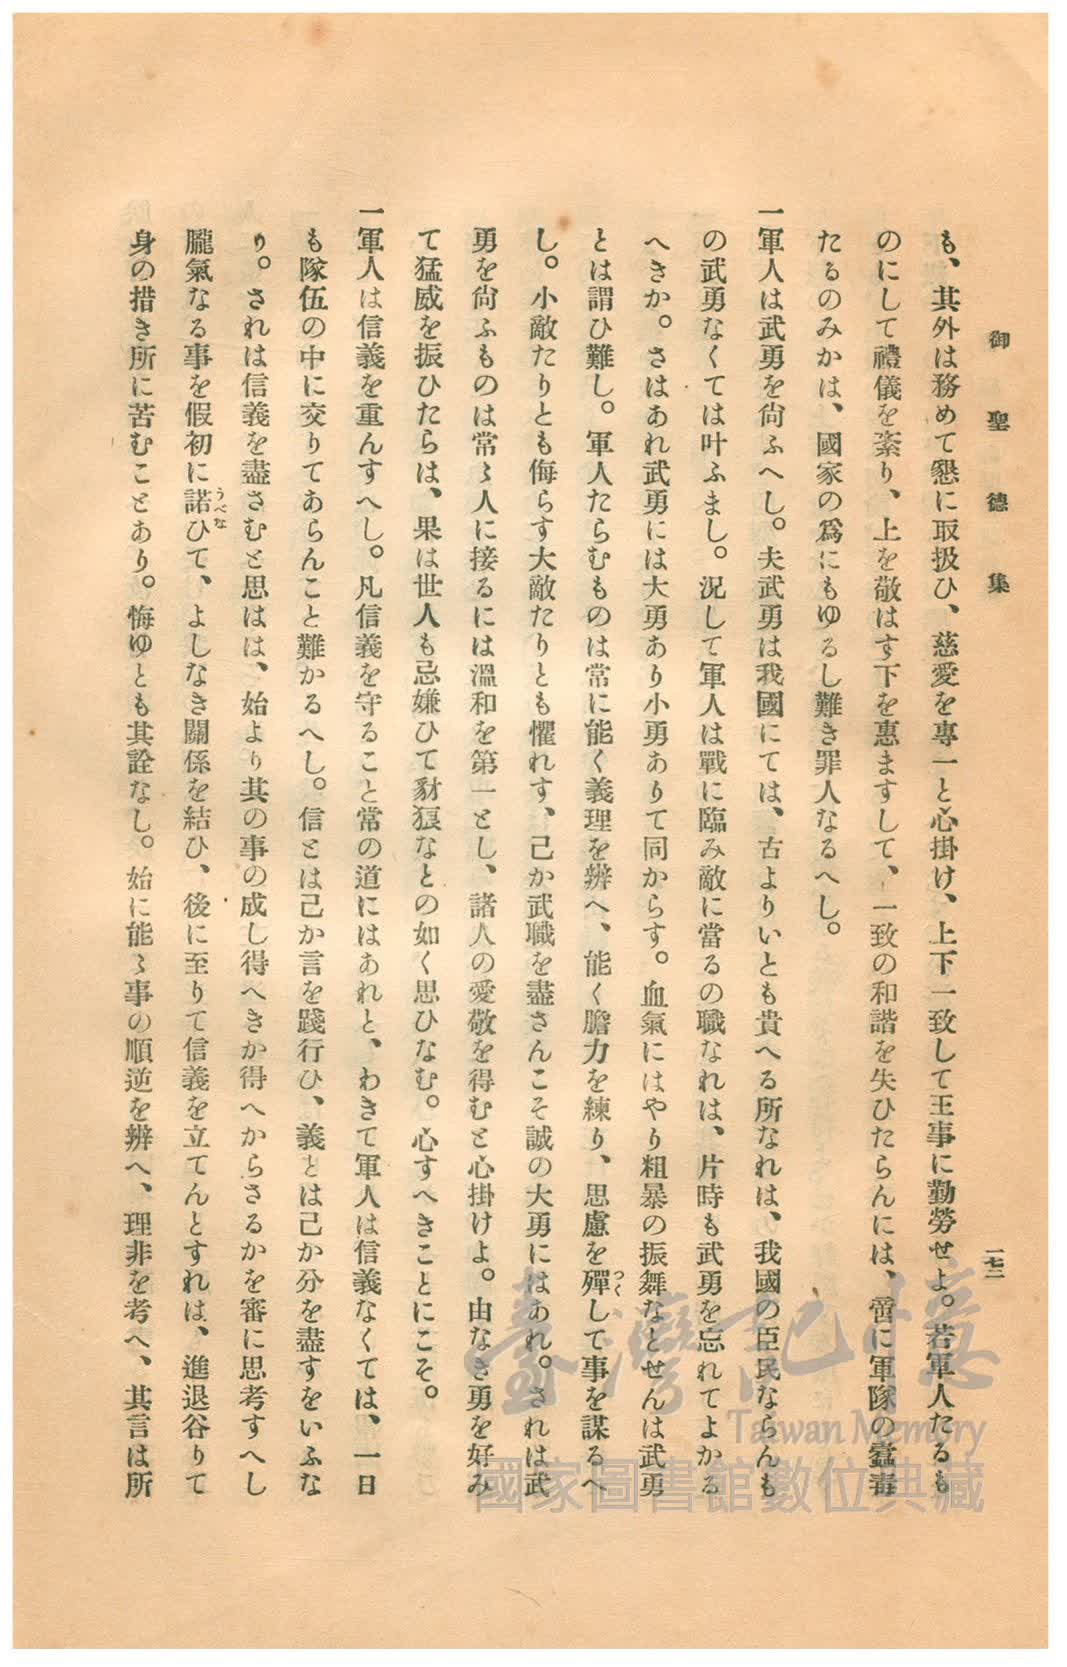 御聖德集
一七二
も、其外は務めて懇に取扱ひ、慈愛を專一と心掛け、上下一致して王事に勤勞せよ。若軍人たるも
のにして禮儀を紊り、上を敬はす下を惠ますして、一致の和諧を失ひたらんには、啻に軍隊の蠹毒
たるのみかは、國家の爲にもゆるし難き罪人なるへし。
一軍人は武勇を尙ふへし。夫武勇は我國にては、古よりいとも貴へる所なれは、我國の臣民ならんも
の武勇なくては叶ふまし。況して軍人は戰に臨み敵に當るの職なれは、片時も武勇を忘れてよかる
へきか。さはあれ武勇には大勇あり小勇ありて同からす。血氣にはやり粗暴の振舞なとせんは武勇
とは謂ひ難し。軍人たらむものは常に能く義理を辨へ、能く膽力を練り、思慮を殫つくして事を謀るへ
し。小敵たりとも侮らす大敵たりとも懼れす、己か武職を盡さんこそ誠の大勇にはあれ。されは武
勇を尙ふものは常〻人に接るには溫和を第一とし、諸人の愛敬を得むと心掛けよ。由なき勇を好み
て猛威を振ひたらは、果は世人も忌嫌ひて豺狼なとの如く思ひなむ。心すへきことにこそ。
一軍人は信義を重んすへし。凡信義を守ること常の道にはあれと、わきて軍人は信義なくては、一日
も隊伍の中に交りてあらんこと難かるへし。信とは己か言を踐行ひ、義とは己か分を盡すをいふな
り。されは信義を盡さむと思はは、始より其の事の成し得へきか得へからさるかを審に思考すへし
朧氣なる事を假初に諾うべなひて、よしなき關係を結ひ、後に至りて信義を立てんとすれは、進退谷りて
身の措き所に苦むことあり。悔ゆとも其詮なし。始に能〻事の順逆を辨へ、理非を考へ、其言は所
臺灣記憶
Taiwan Memory
國家圖書館數位典藏